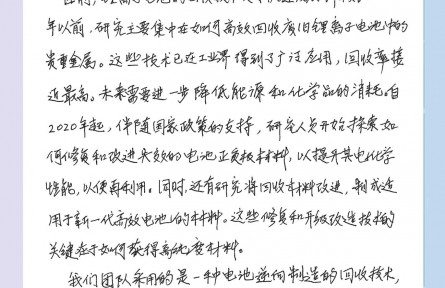 年以前,研究主要集中在如何高效回收废旧锂离子电池中的
贵重金属。这些技术已在工业界得到了广泛应用,回收率接
近最高。未来需要进一步降低能源和化学品的消耗。自
2020年起,伴随国家政策的支持,研究人员开始探索如
何修复和改进失效的电池正负极材料,以提升其电化学
性能,以便再利用。同时,还有研究将回收材料改进,制成适
用于新一代高效电池的材料。这些修复和升级改造技术的
关键在于如何获得高纯度材料。
我们团队采用的是一种电池逆向制造的回收技术,